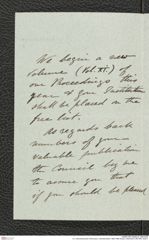 We begin a new
volume (Vol. XI.) of
our Proceedings this
year & your Institution
shall be placed on the
free list.
As regards back
numbers of your
valuable publication
the Council beg me
to assure you that
if you should be pleased